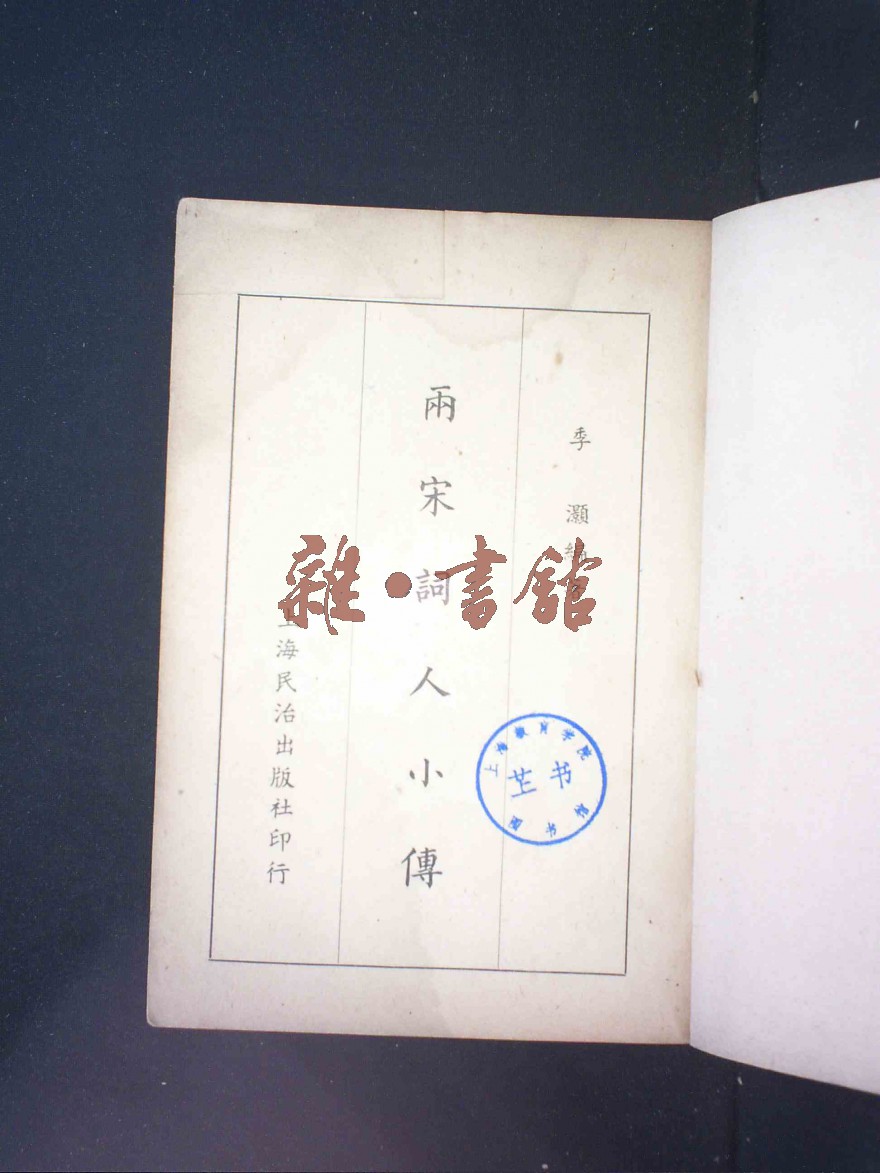 季灝編
兩宋詞人小傳
上海民治出版社印行
雜·書館
上海教育学院
芷书
图书馆